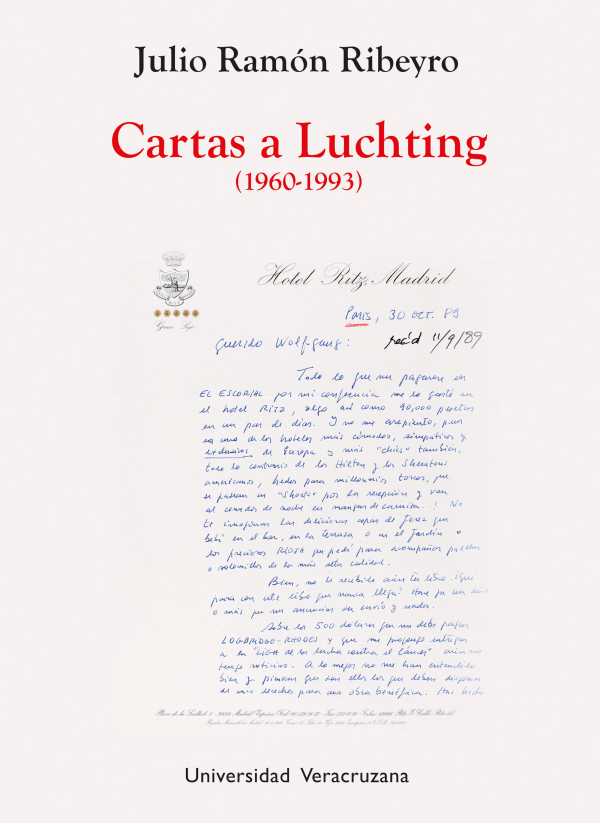 Julio Ramón Ribeyro
Cartas a Luchting
(1960-1993)
Hotel Ritz, Madrid
París, 30 oct. 89
Querido Wolfgang:
rec'd 11/9/89
Todo lo que me pagaron en
EL ESCORIAL por mi conferencia me lo gasté en
el hotel RITZ, algo así como 90,000 pesetas
en un par de días. Y no me arrepiento, pues
es uno de los hoteles más cómodos, simpáticos y
exclusivos de Europa y más "chics" también,
todo lo contrario de los Hilton y los Sheratons
americanos, hechos para millonarios toscos, que
se pasean en "shorts" por la recepción y van
al comedor de noche en mangas de camisa. ! No
te imaginas las deliciosas copas de Jerez que
bebí en el bar, en la terraza o en el jardín o
los preciosos RIOJA que pedí para acompañar
o solomillos de la más alta calidad.
Bien, no he recibido aún tu libro. ¿Qué
pasa con ese libro que nunca llega? Hace ya un
o más que me anuncias su envío y nada.
Sobre los 500 dólares que me debe pagar
LOGBRIDGE-RHODES y que me propongo entregar
a la "LIGA de la lucha contra el Cáncer" aún no
tengo noticias. A lo mejor no me han entendido
bien y piensan que son ellos los que deben disponer
de mis derechos para una obra benéfica. Mi
Universidad Veracruzana